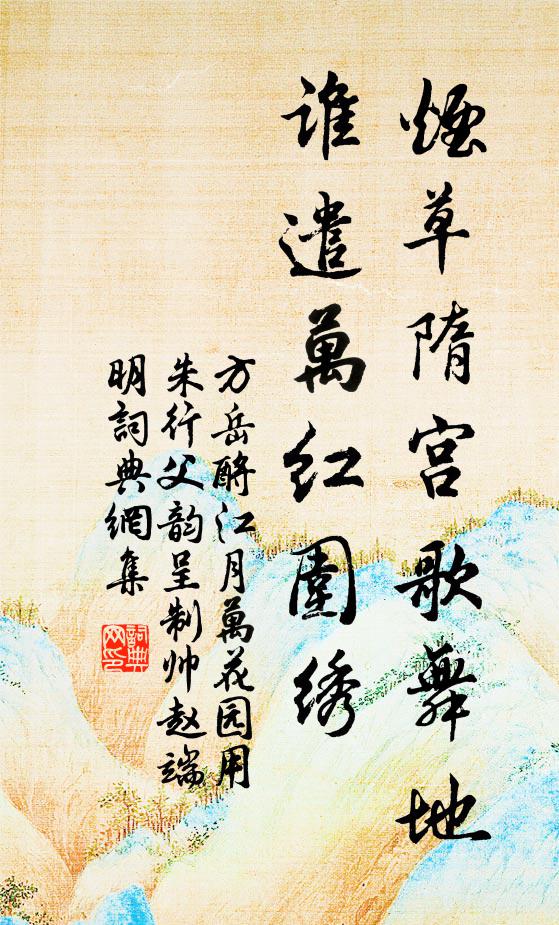 煙草隋宮歌舞地
誰遣萬紅圍绣
方岳酹江月萬花园用
朱行父韵呈制帅赵端
明詞典網集
詞典網印